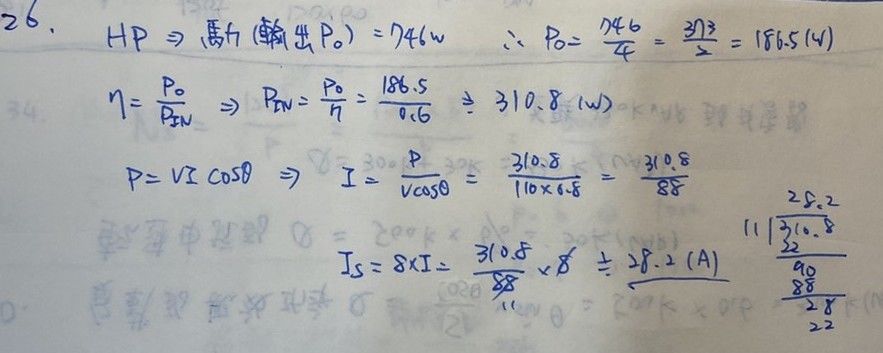 26.
HP ⇒ 馬力 (輸出 P₀) = 746w ∴ P₀ = 746/4 = 373/2 = 186.5 (W)
η = P₀/P_IN ⇒ P_IN = P₀/η = 186.5/0.6 ≒ 310.8 (W)
P = VI cosθ ⇒ I = P/Vcosθ = 310.8/110×0.8 = 310.8/88
I_S = 8×I = 310.8/88 × 8 ≒ 28.2 (A)
11
28.2
11 310.8
22
90
88
28
22